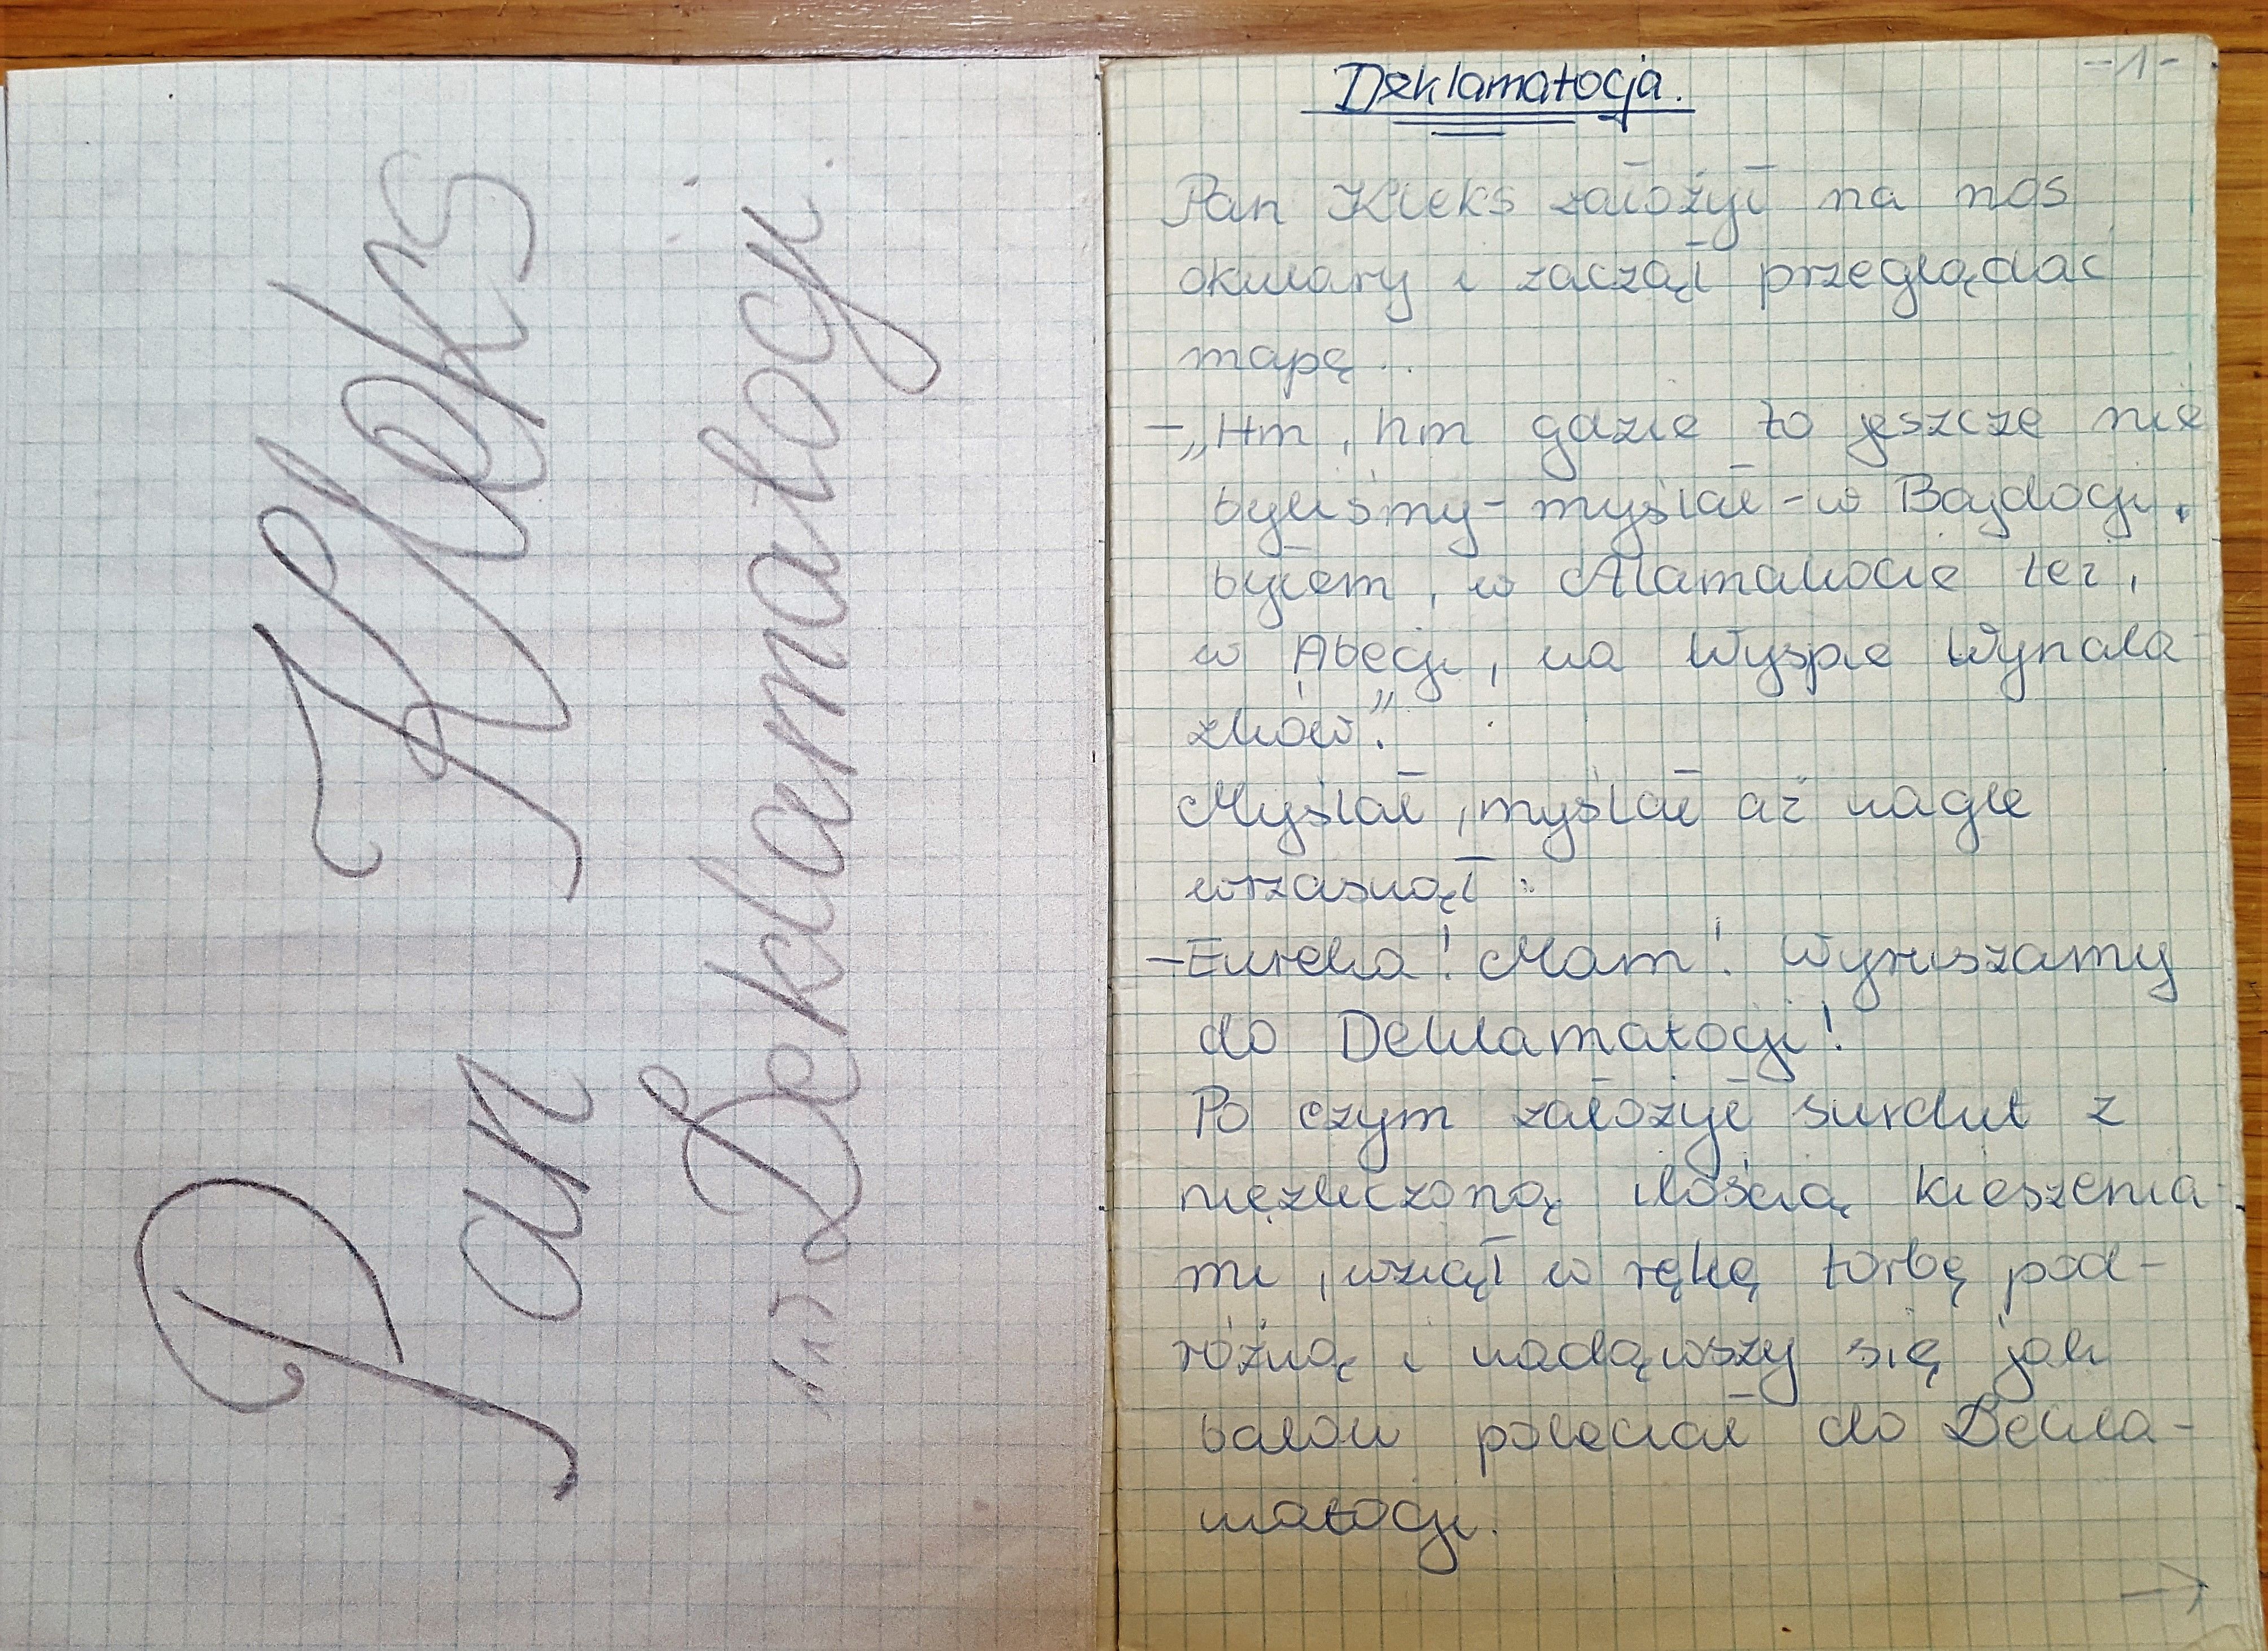 Pan Kleks
w Deklamatocji.
-1-
Deklamatocja.
Pan Kleks założył na nos
okulary i zaczął przeglądać
mapę...
-„Hm, hm gdzie to jeszcze nie
byliśmy - myślał - w Bajdocji,
byłem, w Alamakocie też,
w Abecji, na Wyspie Wynala-
zków."
Myślał, myślał aż nagle
wrzasnął:
-Eureka! Mam! Wyruszamy
do Deklamatocji!
Po czym założył surdut z
niezliczoną ilością kieszenia-
mi, wziął w rękę torbę pod-
różną i nadąwszy się jak
balon poleciał do Dekla-
matocji.